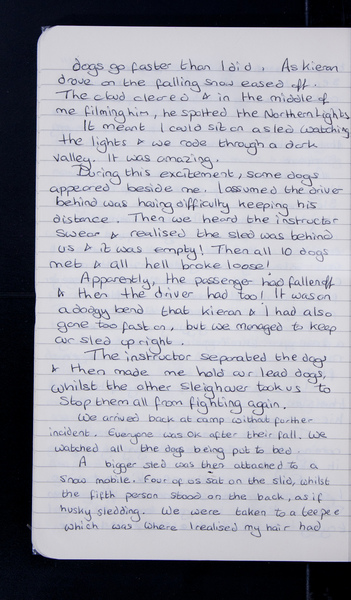 dogs go faster than I did. As Kieran
drove on the falling snow eased off.
The cloud cleared & in the middle of
me filming him, he spotted the Northern Lights.
It meant I could sit on a sled watching
the lights & we rode through a dark
valley. It was amazing.
During this excitement, some dogs
appeared beside me. I assumed the driver
behind was having difficulty keeping his
distance. Then we heard the instructor
swear & realised the sled was behind
us & it was empty! Then all 10 dogs
met & all hell broke loose!
Apparently, the passenger had fallen off
& then the driver had too! It was on
a dodgy bend that Kieran & I had also
gone too fast on, but we managed to keep
our sled upright.
The instructor separated the dogs
& then made me hold our lead dogs,
whilst the other sleigh over took us to
stop them all from fighting again.
We arrived back at camp without further
incident. Everyone was OK after their fall. We
watched all the dogs being put to bed.
A bigger sled was then attached to a
snow mobile. Four of us sat on the slid, whilst
the fifth person stood on the back, as if
husky sledding. We were taken to a teepee
which was where I realised my hair had